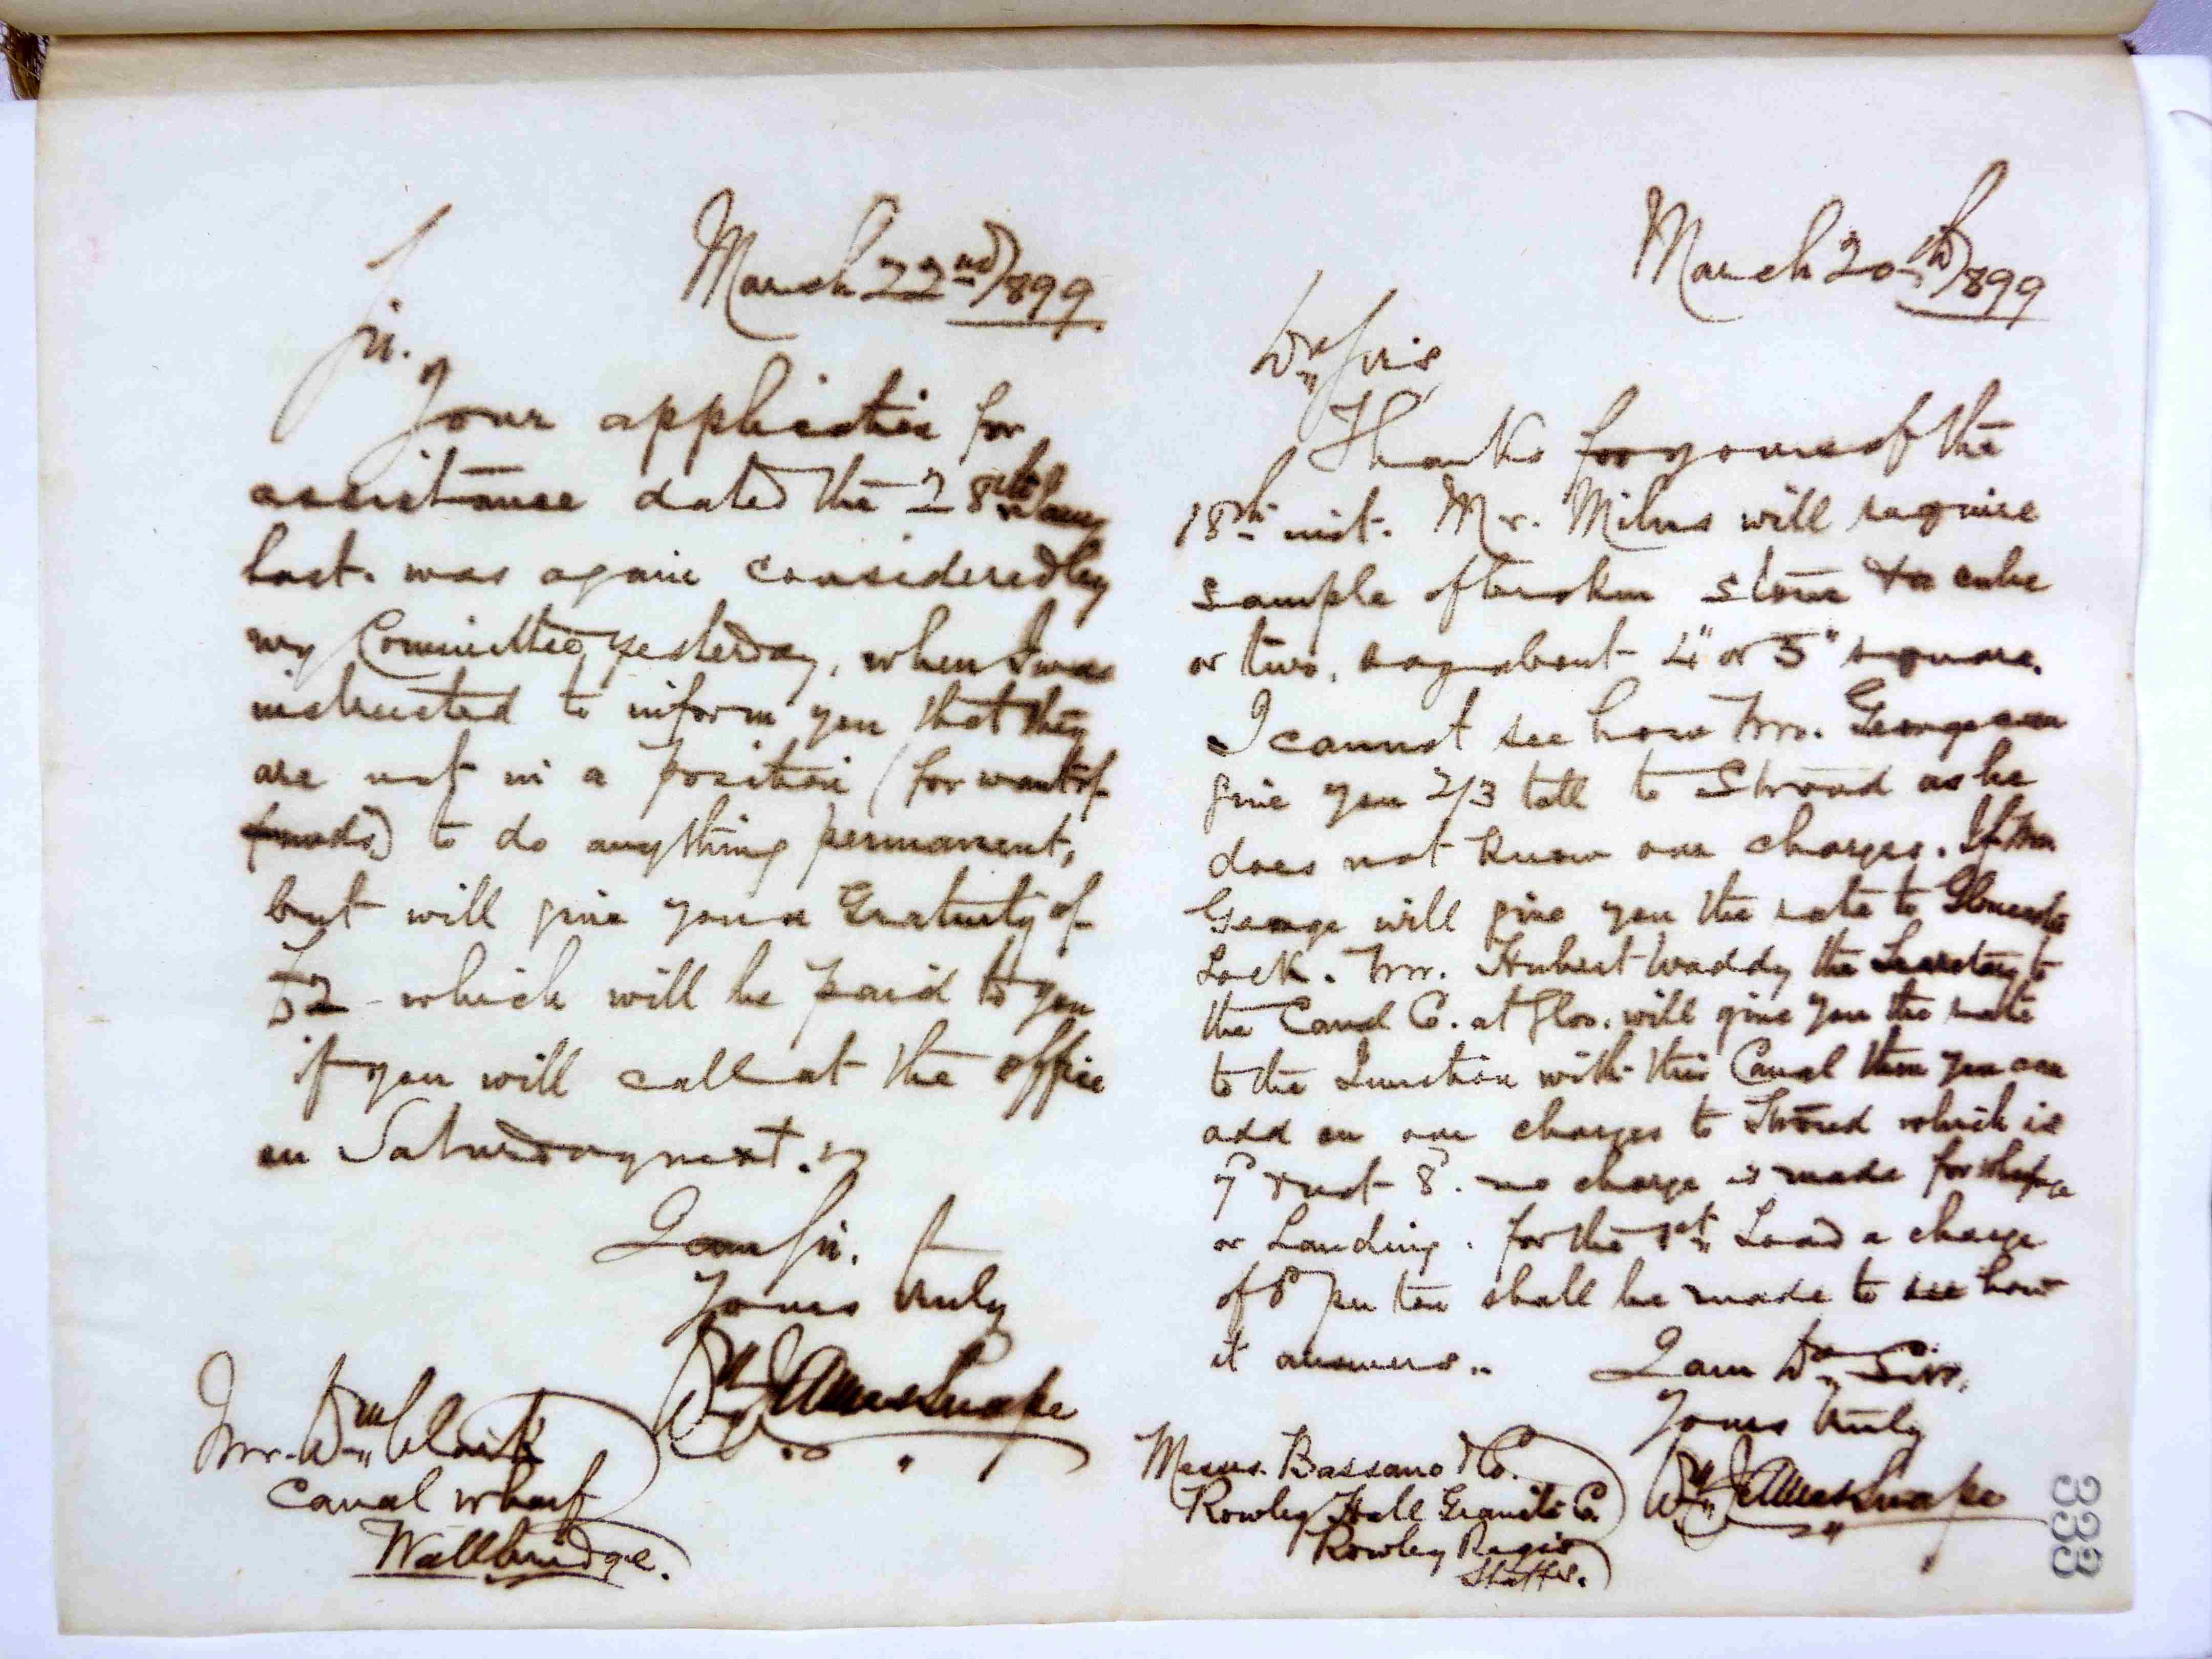 March 22nd/1899
Sir.
Your application for
assistance dated the 28th
last. was again considered by
my Committee yesterday, when I was
instructed to inform you that they
are not in a position (for want of
funds) to do anything permanent,
but will give you a Gratuity of
£2 which will be paid to you
if you will call at the office
on Saturday next.
I am Sir.
Yours truly
Wm J Ames Snape
Mr. Wm Clark
Canal Wharf
Wallbridge.
March 20th/1899
Dr Sirs
Thanks for yours of the
18th inst. Mr. Milnes will require
sample of broken stone cube
or two, say about 4" or 5" square.
I cannot see how Mr. George can
give you 2/3 toll to Stroud as he
does not know our charges. If Mr.
George will give you the rate to Gloucester
Lock. Mr. Hubert Waddy the Secretary to
the Canal Co. at Glos. will give you the rate
to the Junction with this Canal then you can
add on our charges to Stroud which is
7d not 8d. no charge is made for wharfage
or Landing. for the 1st Load a charge
of 8d per ton shall be made to see how
it answers..
I am Dr Sirs,
Yours truly
Wm J Ames Snape
Messrs. Bassano & Co.
Rowley Hall Granite Co.
Rowley Regis
Staffs.
333